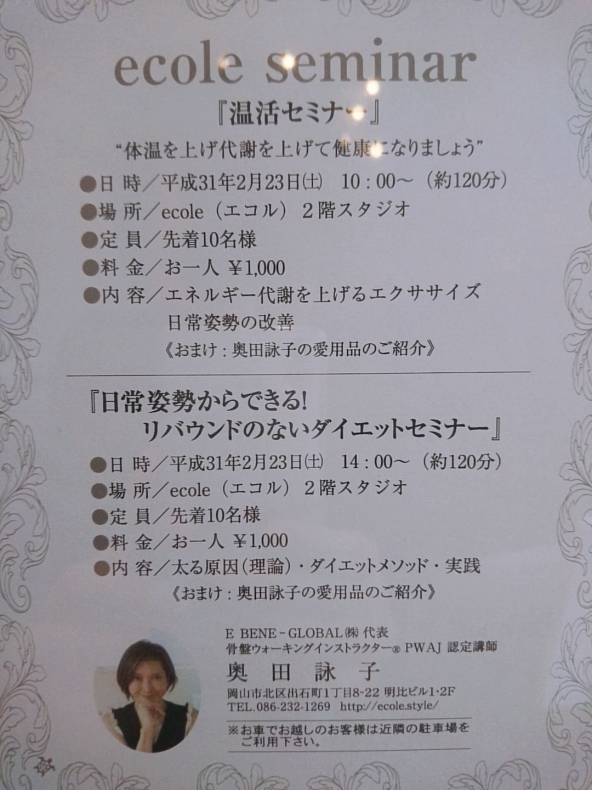 ecole seminar
『温活セミナー』
“体温を上げ代謝を上げて健康になりましょう”
●日 時／平成31年2月23日㈯ 10：00〜（約120分）
●場 所／ecole（エコル）２階スタジオ
●定 員／先着10名様
●料 金／お一人 ￥1,000
●内 容／エネルギー代謝を上げるエクササイズ
日常姿勢の改善
《おまけ：奥田詠子の愛用品のご紹介》
『日常姿勢からできる!
リバウンドのないダイエットセミナー』
●日 時／平成31年2月23日㈯ 14：00〜（約120分）
●場 所／ecole（エコル）２階スタジオ
●定 員／先着10名様
●料 金／お一人 ￥1,000
●内 容／太る原因（理論）・ダイエットメソッド・実践
《おまけ：奥田詠子の愛用品のご紹介》
E BENE-GLOBAL㈱ 代表
骨盤ウォーキングインストラクター® PWAJ 認定講師
奥田詠子
岡山市北区出石町1丁目8-22 明比ビル1･2F
TEL.086-232-1269 http://ecole.style/
※お車でお越しのお客様は近隣の駐車場を
ご利用下さい。